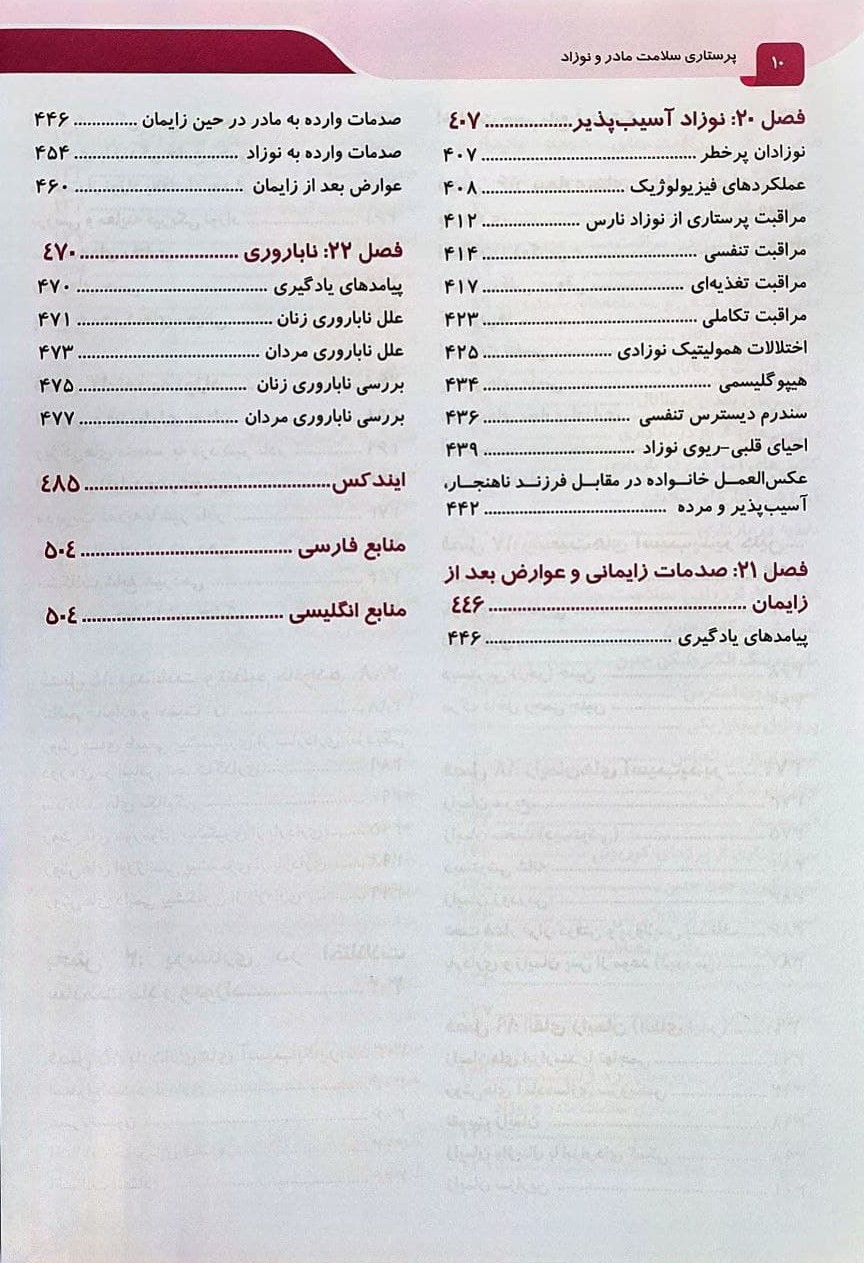 ۱۰
پرستاری سلامت مادر و نوزاد
فصل ۲۰: نوزاد آسیب‌پذیر .................. ۴۰۷
نوزادان پرخطر .................. ۴۰۷
عملکردهای فیزیولوژیک .................. ۴۰۸
مراقبت پرستاری از نوزاد نارس .................. ۴۱۲
مراقبت تنفسی .................. ۴۱۴
مراقبت تغذیه‌ای .................. ۴۱۷
مراقبت تکاملی .................. ۴۲۳
اختلالات همولیتیک نوزادی .................. ۴۲۵
هیپوگلیسمی .................. ۴۳۴
سندرم دیسترس تنفسی .................. ۴۳۶
احیای قلبی-ریوی نوزاد .................. ۴۳۹
عکس‌العمل خانواده در مقابل فرزند ناهنجار،
آسیب‌پذیر و مرده .................. ۴۴۲
فصل ۲۱: صدمات زایمانی و عوارض بعد از
زایمان .................. ۴۴۶
پیامدهای یادگیری .................. ۴۴۶
صدمات وارده به مادر در حین زایمان .................. ۴۴۶
صدمات وارده به نوزاد .................. ۴۵۴
عوارض بعد از زایمان .................. ۴۶۰
فصل ۲۲: ناباروری .................. ۴۷۰
پیامدهای یادگیری .................. ۴۷۰
علل ناباروری زنان .................. ۴۷۱
علل ناباروری مردان .................. ۴۷۳
بررسی ناباروری زنان .................. ۴۷۵
بررسی ناباروری مردان .................. ۴۷۷
ایندکس .................. ۴۸۵
منابع فارسی .................. ۵۰۴
منابع انگلیسی .................. ۵۰۴